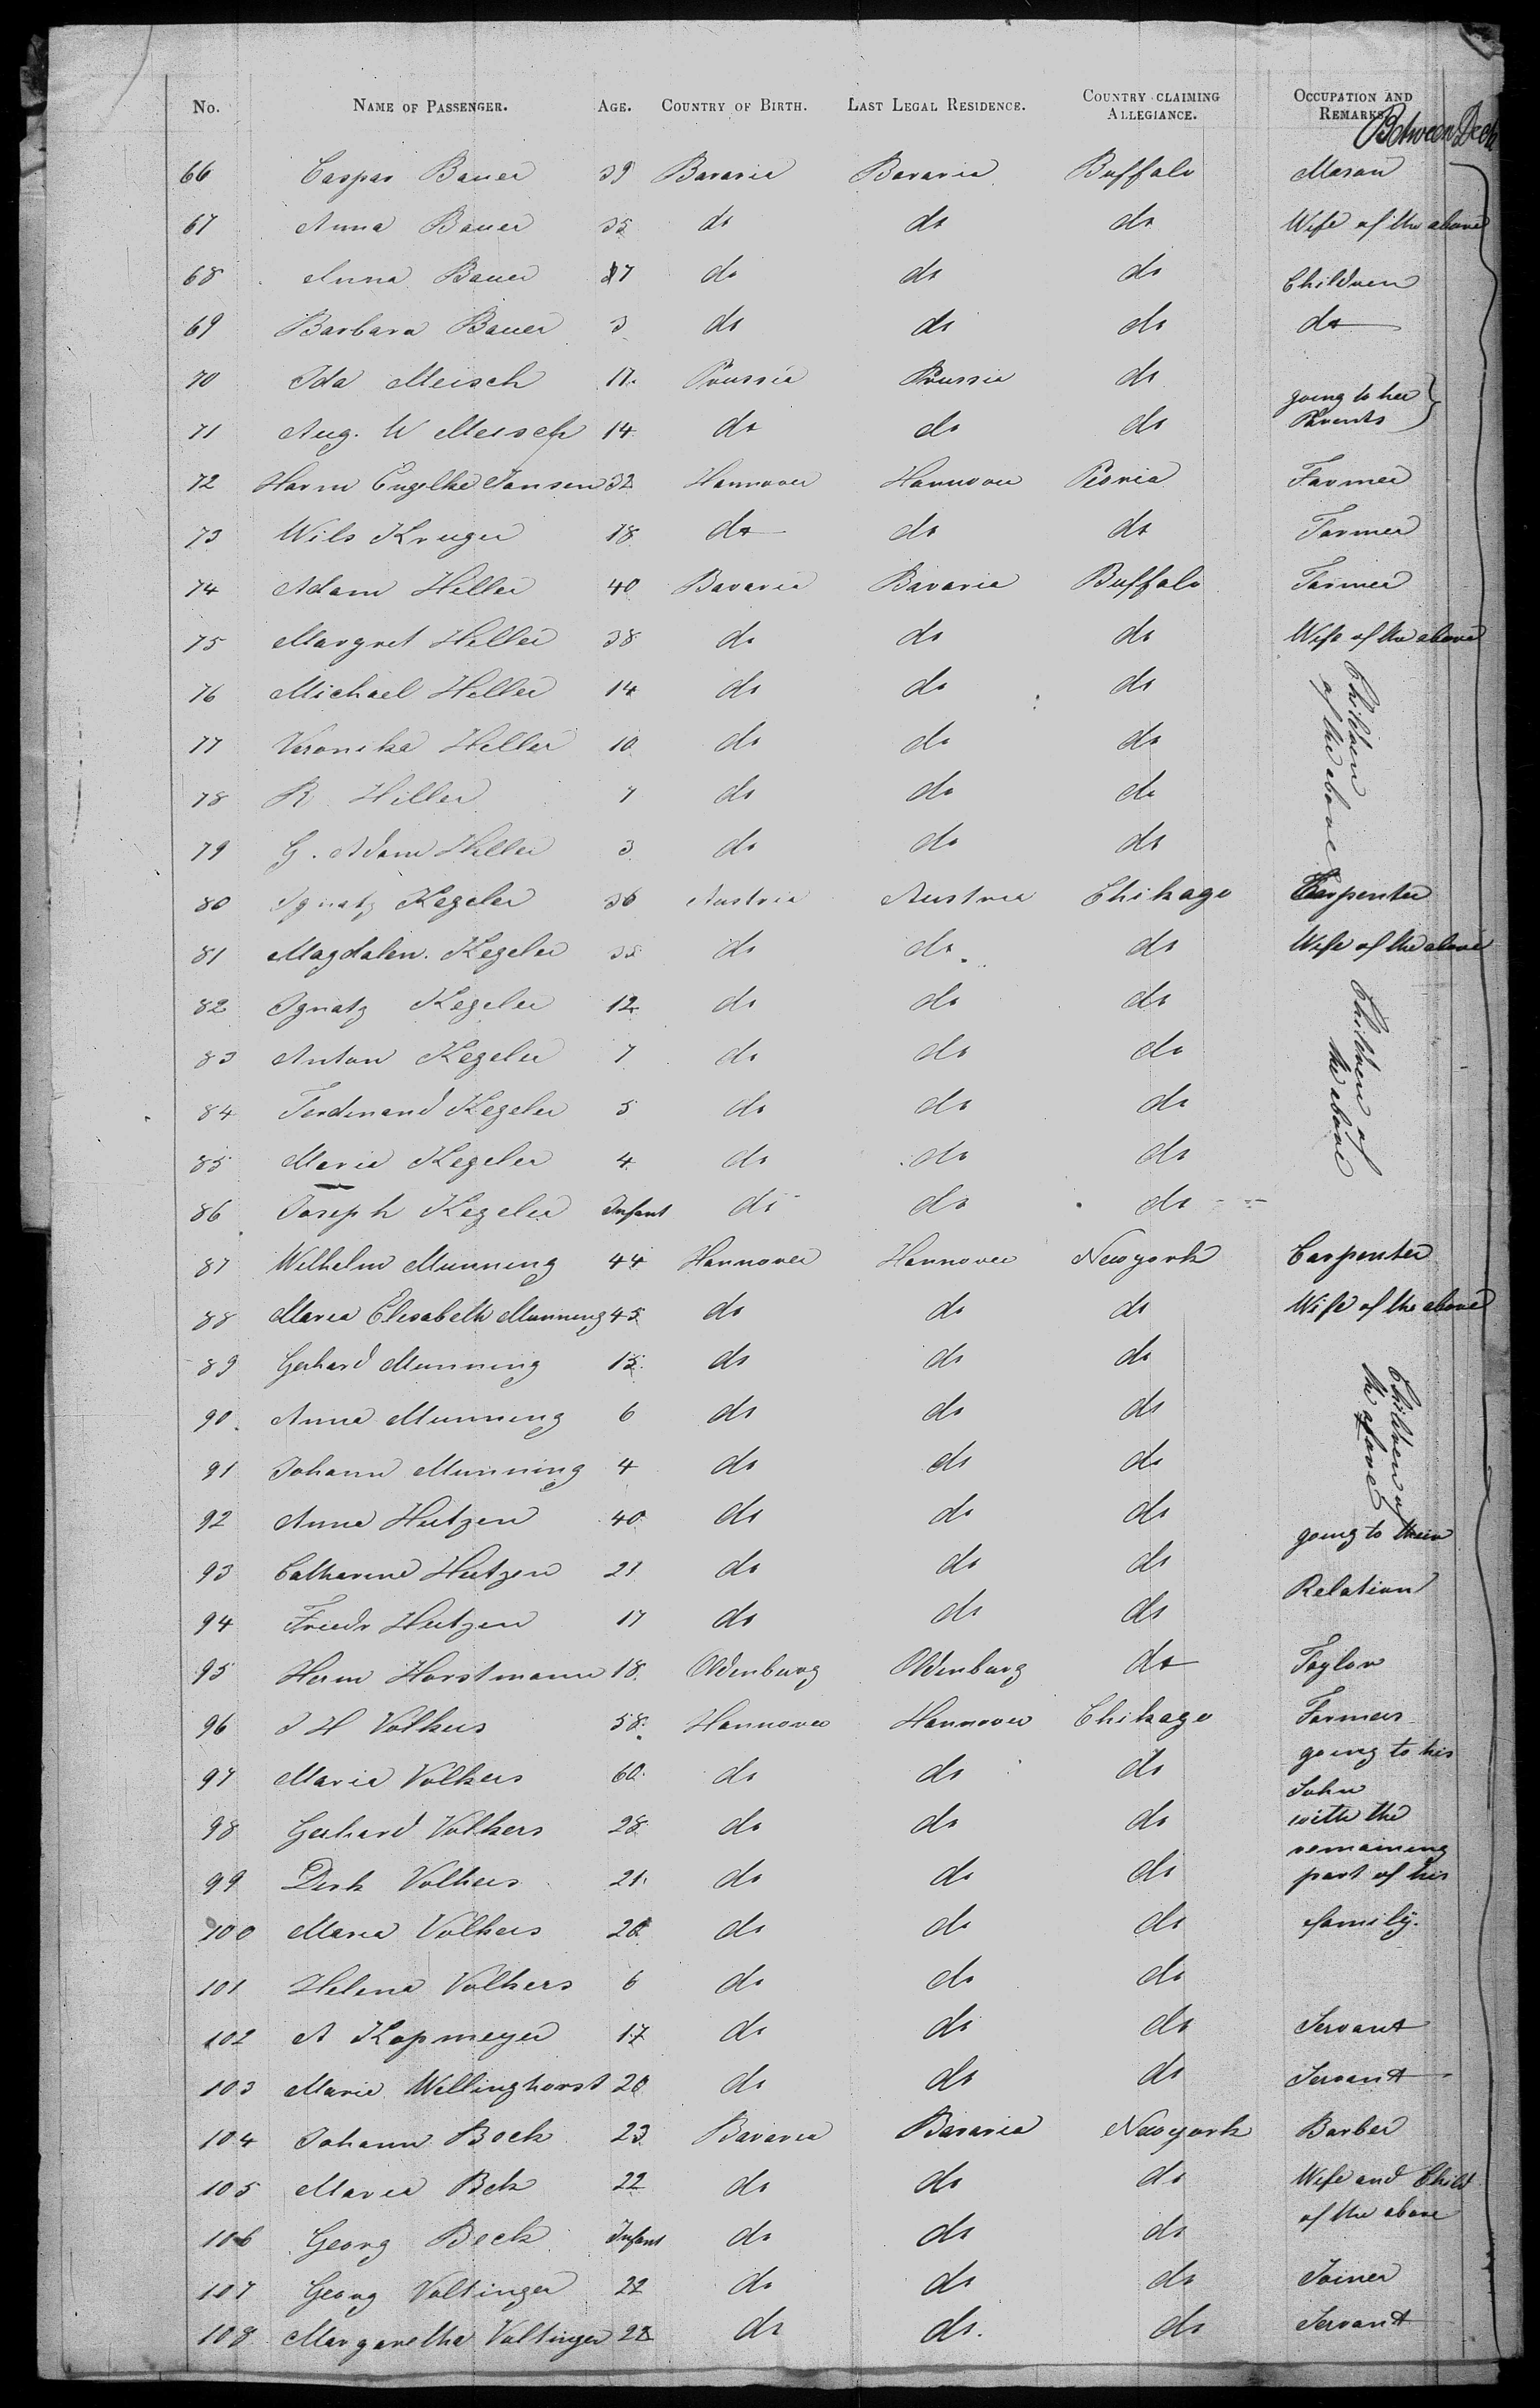 No. NAME OF PASSENGER. AGE. COUNTRY OF BIRTH. LAST LEGAL RESIDENCE. COUNTRY CLAIMING ALLEGIANCE. OCCUPATION AND REMARKS
Between Deck
66 Caspar Bauer 39 Bavaria Bavaria Buffalo Mason
67 Anna Bauer 35 do do do Wife of the above
68 Anna Bauer 7 do do do Children
69 Barbara Bauer 3 do do do do
70 Ida Meisch 17 Prussia Prussia do going to her
71 Aug. W Meisch 14 do do do Parents
72 Harm Engelke Jansen 32 Hannover Hannover Peoria Farmer
73 Wils Kruger 18 do do do Farmer
74 Adam Heller 40 Bavaria Bavaria Buffalo Farmer
75 Margret Heller 38 do do do Wife of the above
76 Michael Heller 14 do do do Children of the above
77 Veronika Heller 10 do do do
78 R Hiller 7 do do do
79 G. Adam Heller 3 do do do
80 Ignatz Kegeler 36 Austria Austria Chikago Carpenter
81 Magdalen. Kegeler 35 do do do Wife of the above
82 Ignatz Kegeler 12 do do do Children of the above
83 Anton Kegeler 7 do do do
84 Ferdinand Kegeler 5 do do do
85 Maria Kegeler 4 do do do
86 Joseph Kegeler Infant do do do
87 Wilhelm Munning 44 Hannover Hannover Newyork Carpenter
88 Maria Elisabeth Munning 45 do do do Wife of the above
89 Gerhard Munning 15 do do do Children of the above
90 Anna Munning 6 do do do
91 Johann Munning 4 do do do
92 Anna Hutzen 40 do do do going to their
93 Catharine Hutzen 21 do do do Relation
94 Friedr Hutzen 17 do do do
95 Herm Horstmann 18 Oldenburg Oldenburg do Taylor
96 J H Volkers 58 Hannover Hannover Chikago Farmer
97 Maria Volkers 60 do do do going to his John
98 Gerhard Volkers 28 do do do with the remaining
99 Dirk Volkers 21 do do do part of his
100 Maria Volkers 20 do do do family.
101 Helena Volkers 6 do do do
102 A Kopmeyer 17 do do do Servant
103 Marie Wellinghorst 20 do do do Servant
104 Johann Bock 23 Bavaria Bavaria Newyork Barber
105 Maria Bck 22 do do do Wife and Child
106 Georg Beck Infant do do do of the above
107 Georg Voltinger 22 do do do Joiner
108 Margaretha Voltinger do do do Servant